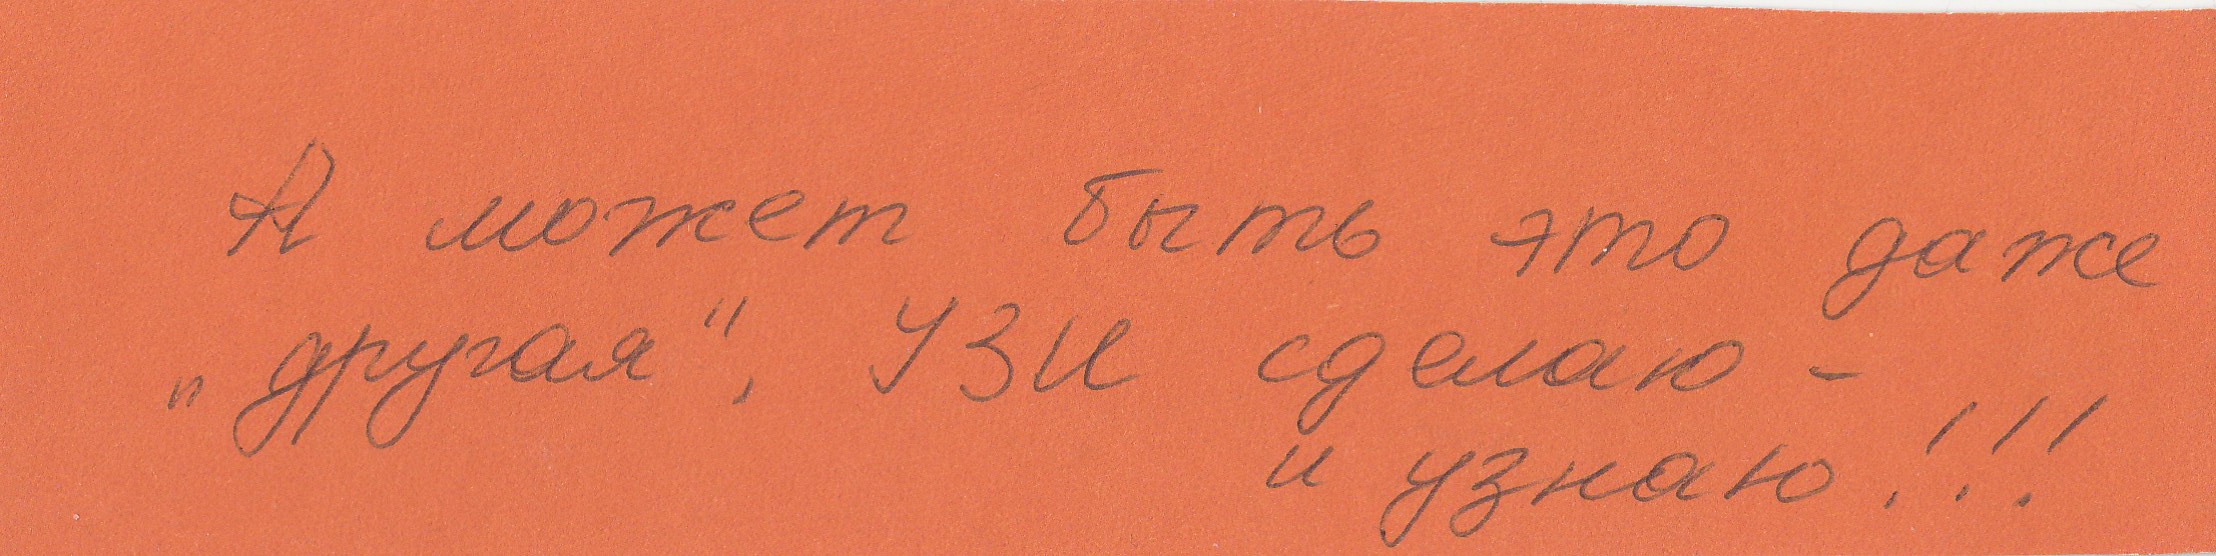 А может быть это даже
„другая", УЗИ сделаю -
и узнаю!!!